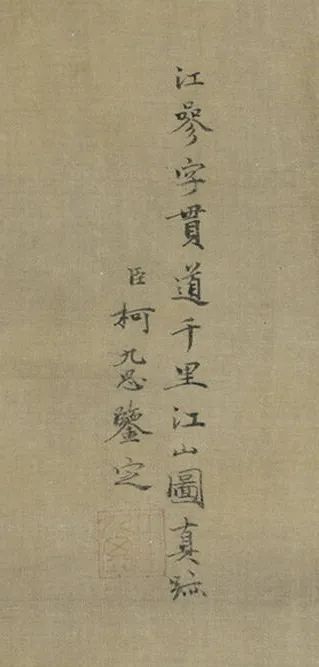 江參字貫道千里江山圖真跡
臣柯九思鑒定